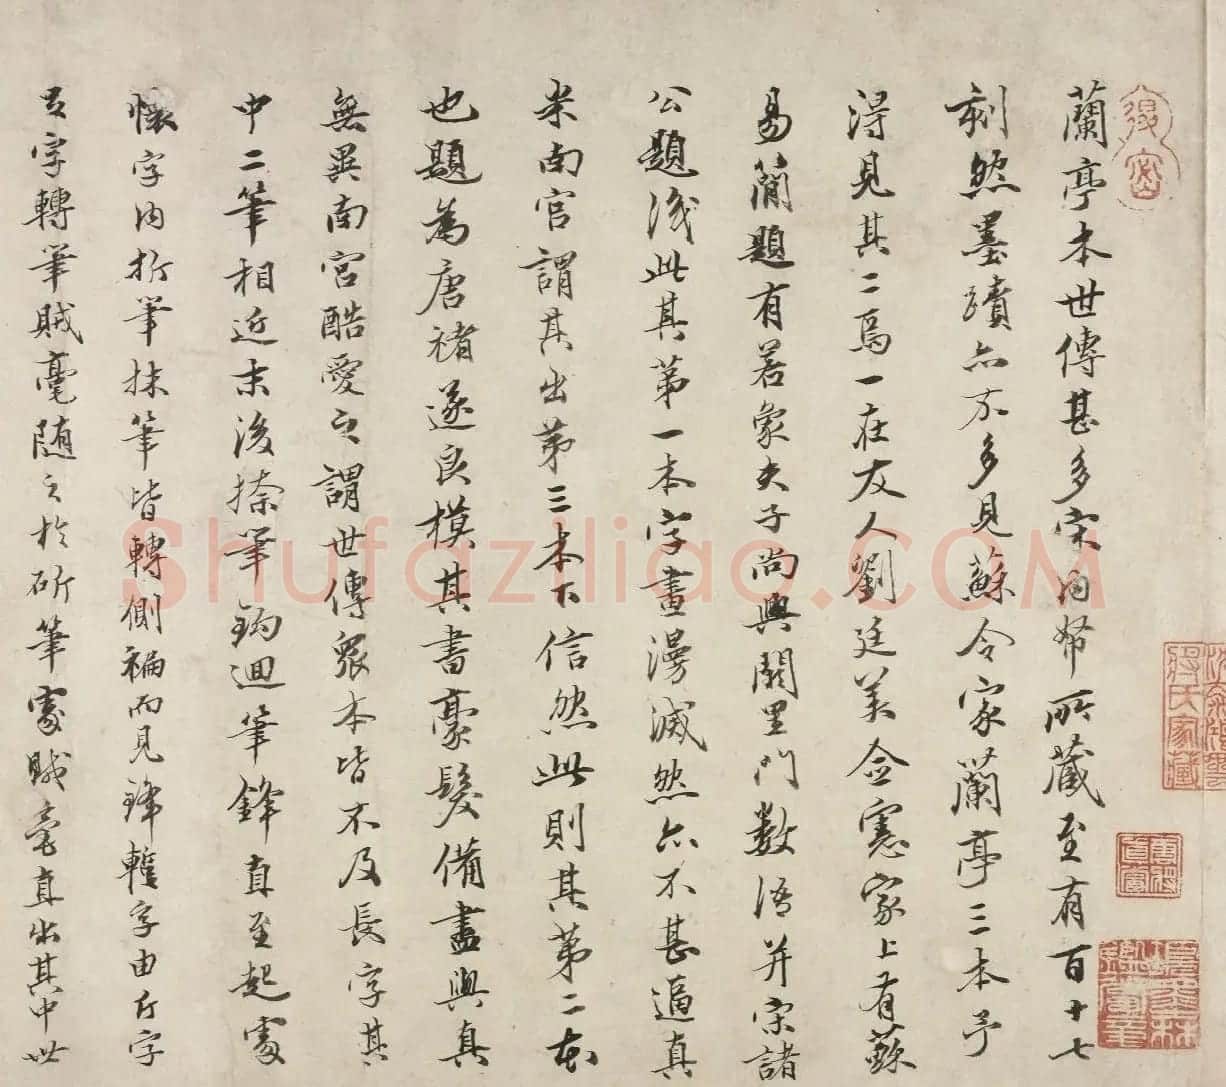 蘭亭本世傳甚多宋内帑所藏至有百十七
刻然墨蹟亦不多見蘇令家蘭亭三本予
得見其二焉一在友人劉廷美僉憲家上有蘇
易簡題有若象夫子尚興闕里門數語并宋諸
公題識此其第一本字畫漫滅然亦不甚逼真
米南宫謂其出第三本下信然此則其第二本
也題為唐褚遂良模其書毫髮備盡與真
無異南宫酷愛之謂世傳衆本皆不及長字其
中二筆相近末後捺筆鈎迴筆鋒直至起處
懷字内折筆抹筆皆轉側褊而見鋒蹔字由斤字
足字轉筆賊毫隨之於斫筆處賊毫直出其中世
Shufaziliao.com